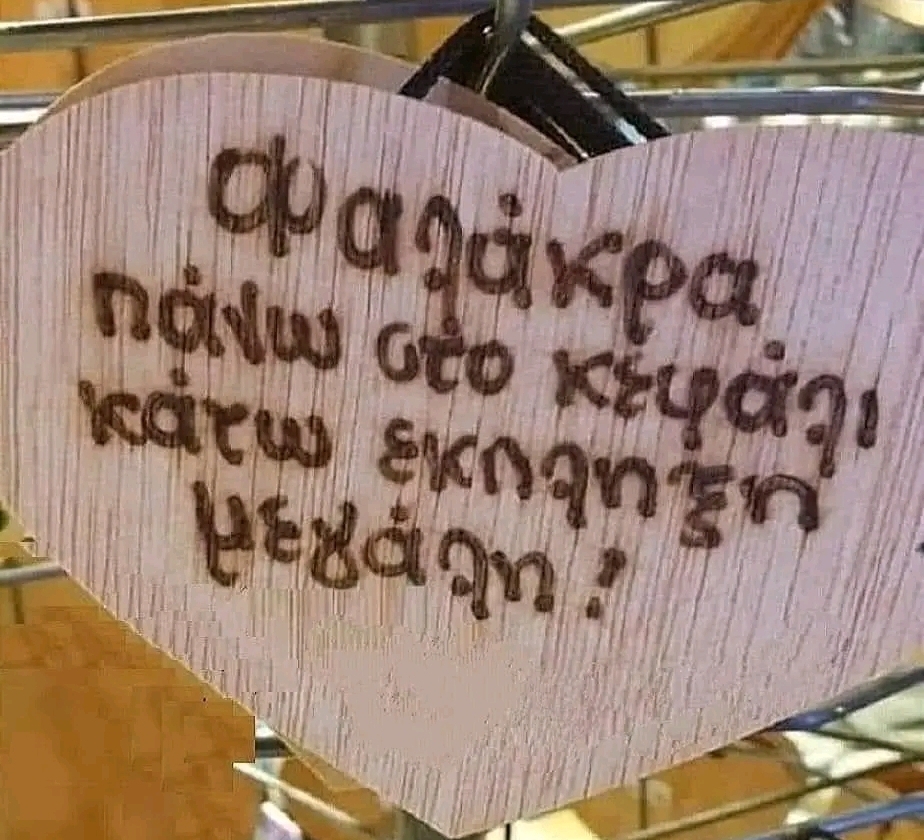 Φαλάκρα
πάνω στο κεφάλι
κάτω εκπληξη
μεγάλη!